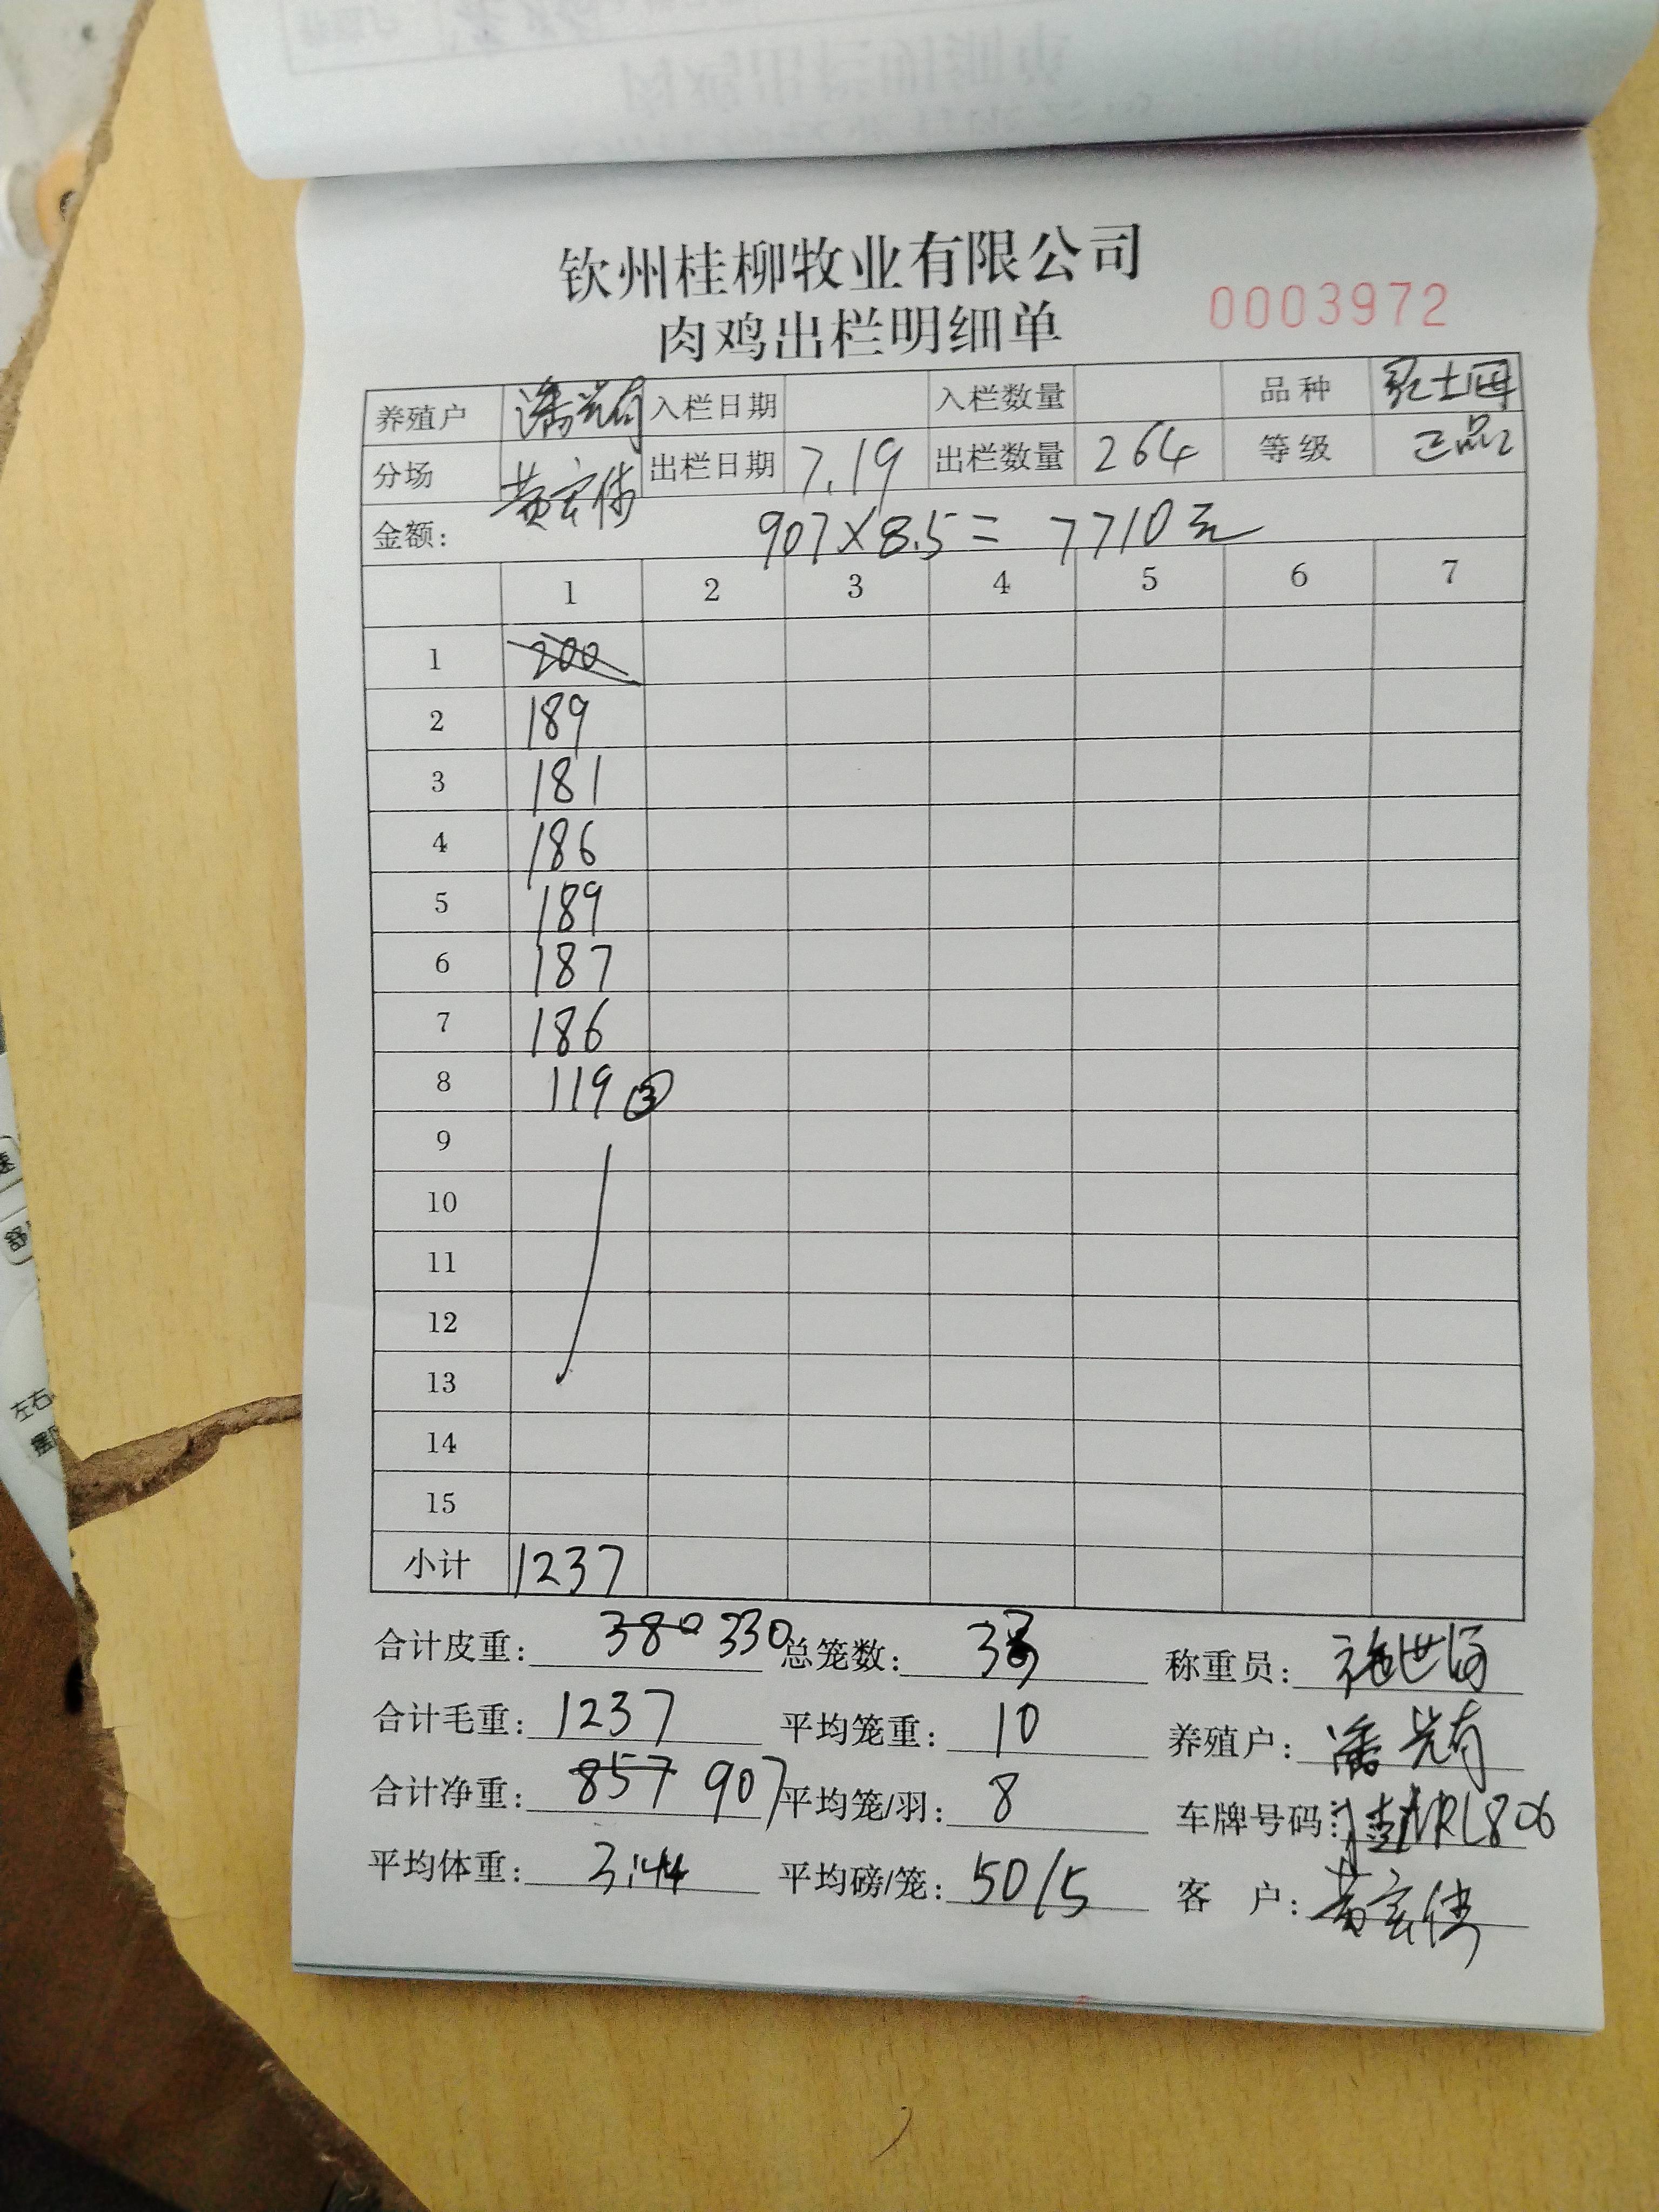 钦州桂柳牧业有限公司
肉鸡出栏明细单 0003972
养殖户 潘光有 入栏日期 入栏数量 品种 灵土母
分场 黄宏伟 出栏日期 7.19 出栏数量 264 等级 正品
金额: 907×8.5= 7710元
1 2 3 4 5 6 7
1 200
2 189
3 181
4 186
5 189
6 187
7 186
8 119 ③
9
10
11
12
13
14
15
小计 1237
合计皮重: 380 330 总笼数: 33 称重员:
合计毛重: 1237 平均笼重: 10 养殖户: 潘光有
合计净重: 857 907 平均笼/羽: 8 车牌号码: 桂NRL806
平均体重: 3.44 平均磅/笼: 50/5 客 户: 黄宏伟
左右